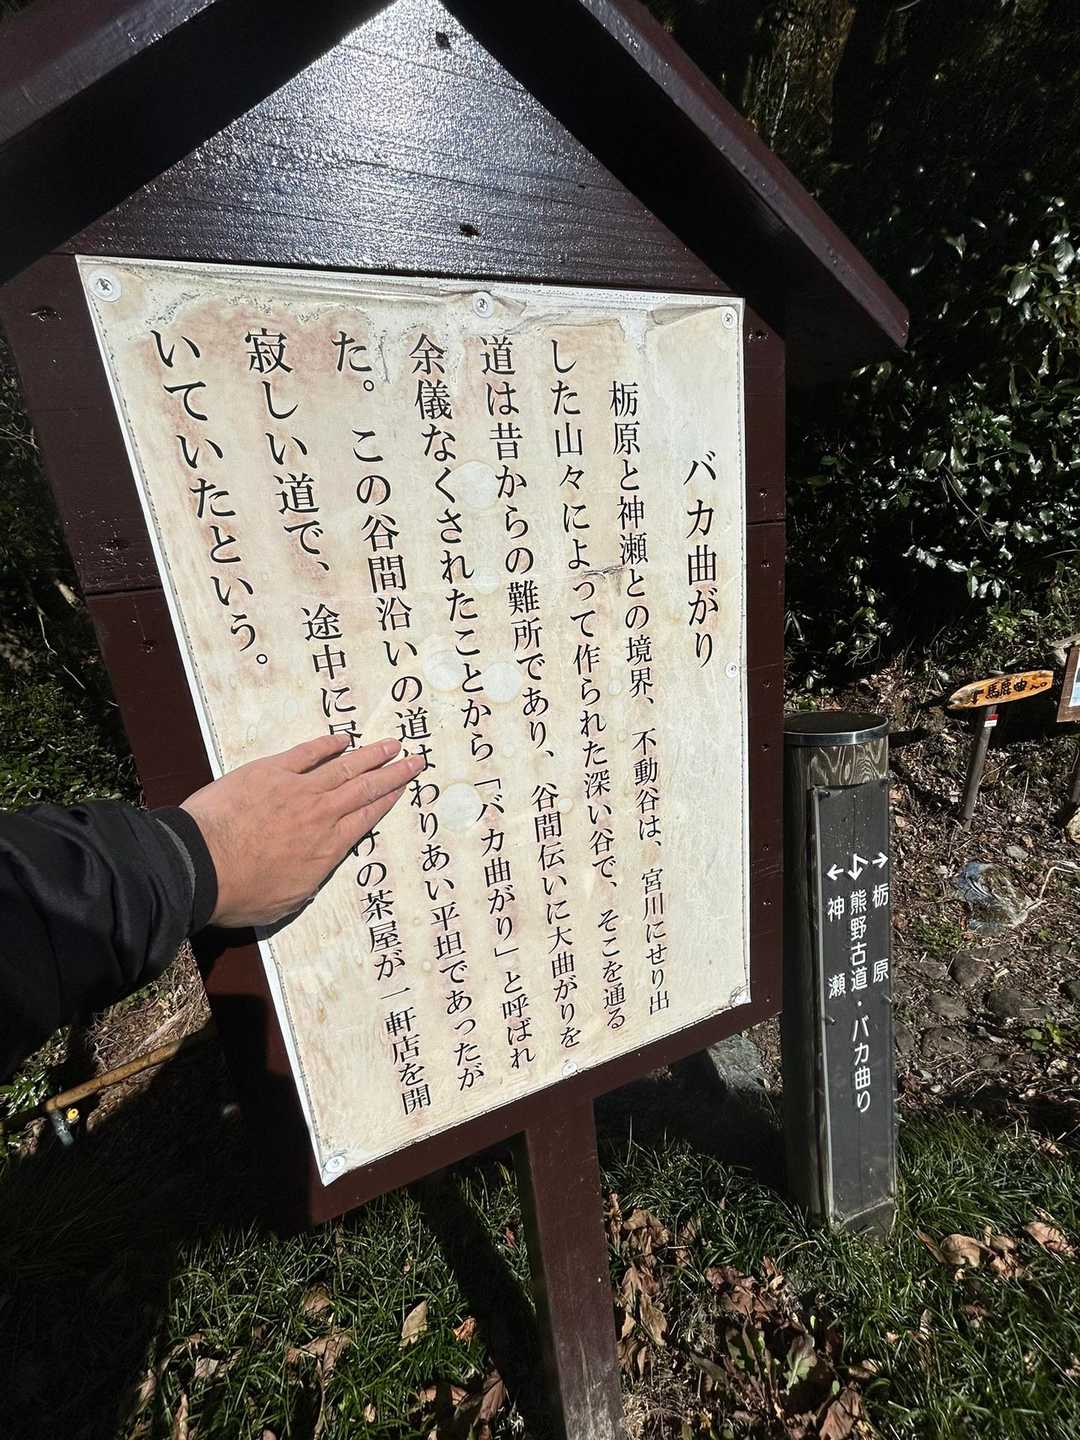 バカ曲がり
栃原と神瀬との境界、不動谷は、宮川にせり出
した山々によって作られた深い谷で、そこを通る
道は昔からの難所であり、谷間伝いに大曲がりを
余儀なくされたことから「バカ曲がり」と呼ばれ
た。この谷間沿いの道はわりあい平坦であったが
寂しい道で、途中に昼
けの茶屋が一軒店を開
いていたという。
栃原
熊野古道・バカ曲り
神瀬
馬鹿曲